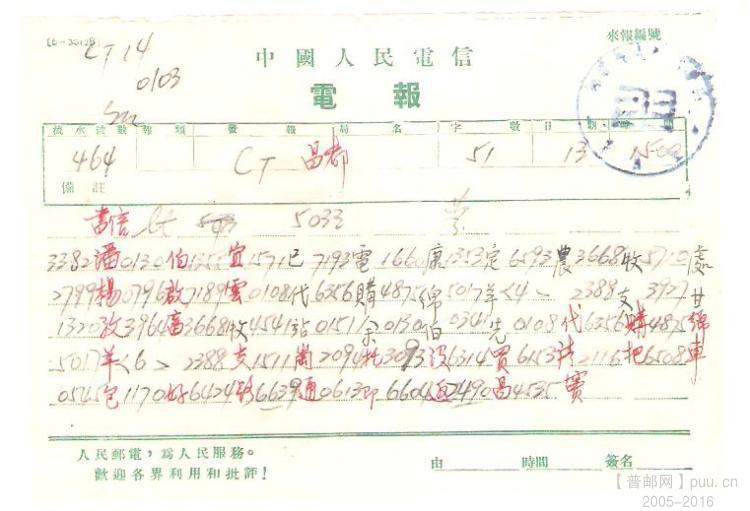 來報編號
CT 14
中國人民電信
0103
電報
流水號數 報類 發報局名 字數 日期 時
464 CT 昌都 51 13 1500
備註
書信 5033
3382潘0130伯1355宜1571已7193電1660康1353定6593農3668收5710處
2799楊0796啟7189雲0108代6356購4875綿5017羊<4> 2388支3927甘
1320孜3964畜3668收4541站0151余0130伯0341先0108代6356購4875綿
5017羊<6> 2388支1511尚2094托3093沒6314買6153請2116把6508車
0545包1170好6424路6639通0613即6604返2490昌4535竇
人民郵電，爲人民服務。
歡迎各界利用和批評！
由 時間 簽名
【普邮网】puu.cn
2005-2016